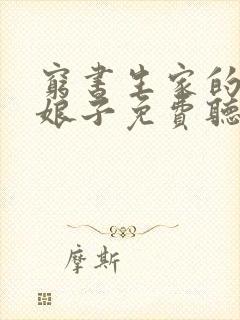 窮書生家的
娘子免費聽
摩斯